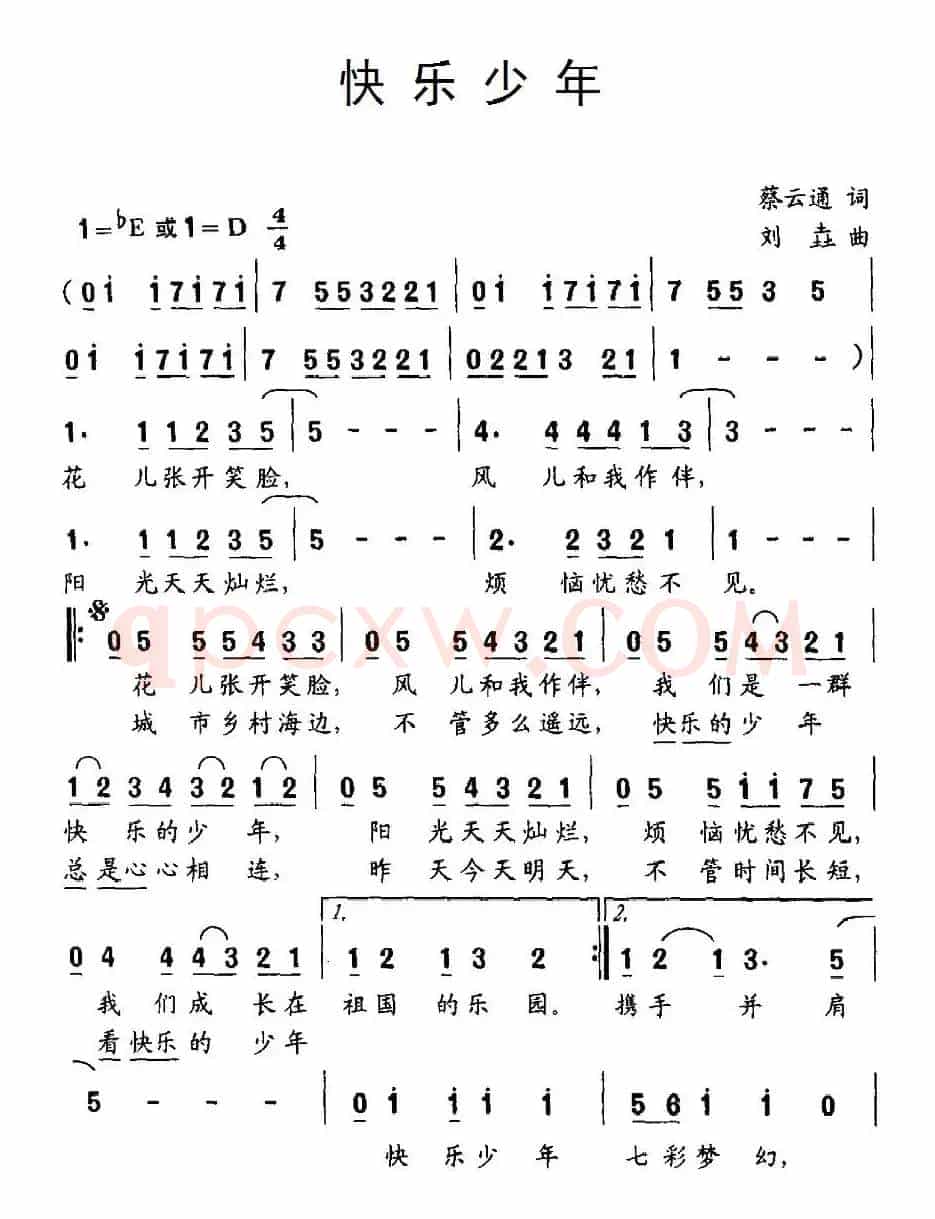 快乐少年
蔡云通 词
1=♭E 或 1=D 4/4
刘 垚 曲
(0 i̇ i̇ 7 i̇ 7 i̇ | 7 5 5 3 2 2 1 | 0 i̇ i̇ 7 i̇ 7 i̇ | 7 5 5 3 5 |
0 i̇ i̇ 7 i̇ 7 i̇ | 7 5 5 3 2 2 1 | 0 2 2 1 3 2 1 | 1 - - - )|
1. 1 1 2 3 5 | 5 - - - | 4. 4 4 4 1 3 | 3 - - -
花 儿张开笑脸, 风 儿和我作伴,
1. 1 1 2 3 5 | 5 - - - | 2. 2 3 2 1 | 1 - - - |
阳 光天天灿烂, 烦 恼忧愁不 见。
qpcxw.COM
‖: 0 5 5 5 4 3 3 | 0 5 5 4 3 2 1 | 0 5 5 4 3 2 1 |
花 儿张开笑脸, 风 儿和我作伴, 我 们是 一群
城 市乡村海边, 不 管多么遥远, 快乐的少 年
1 2 3 4 3 2 1 2 | 0 5 5 4 3 2 1 | 0 5 5 i̇ i̇ 7 5 |
快 乐的少 年, 阳 光天天灿烂, 烦 恼忧愁不见,
总是心心相 连, 昨 天今天明天, 不 管时间长短,
1. 2.
0 4 4 4 3 2 1 | 1 2 1 3 2 :‖ 1 2 1 3. 5 |
我 们成 长在 祖国 的乐 园。 携手 并 肩
看快乐的 少年
5 - - - | 0 i̇ i̇ i̇ i̇ | 5 6 i̇ i̇ 0 |
快 乐少 年 七彩梦 幻,